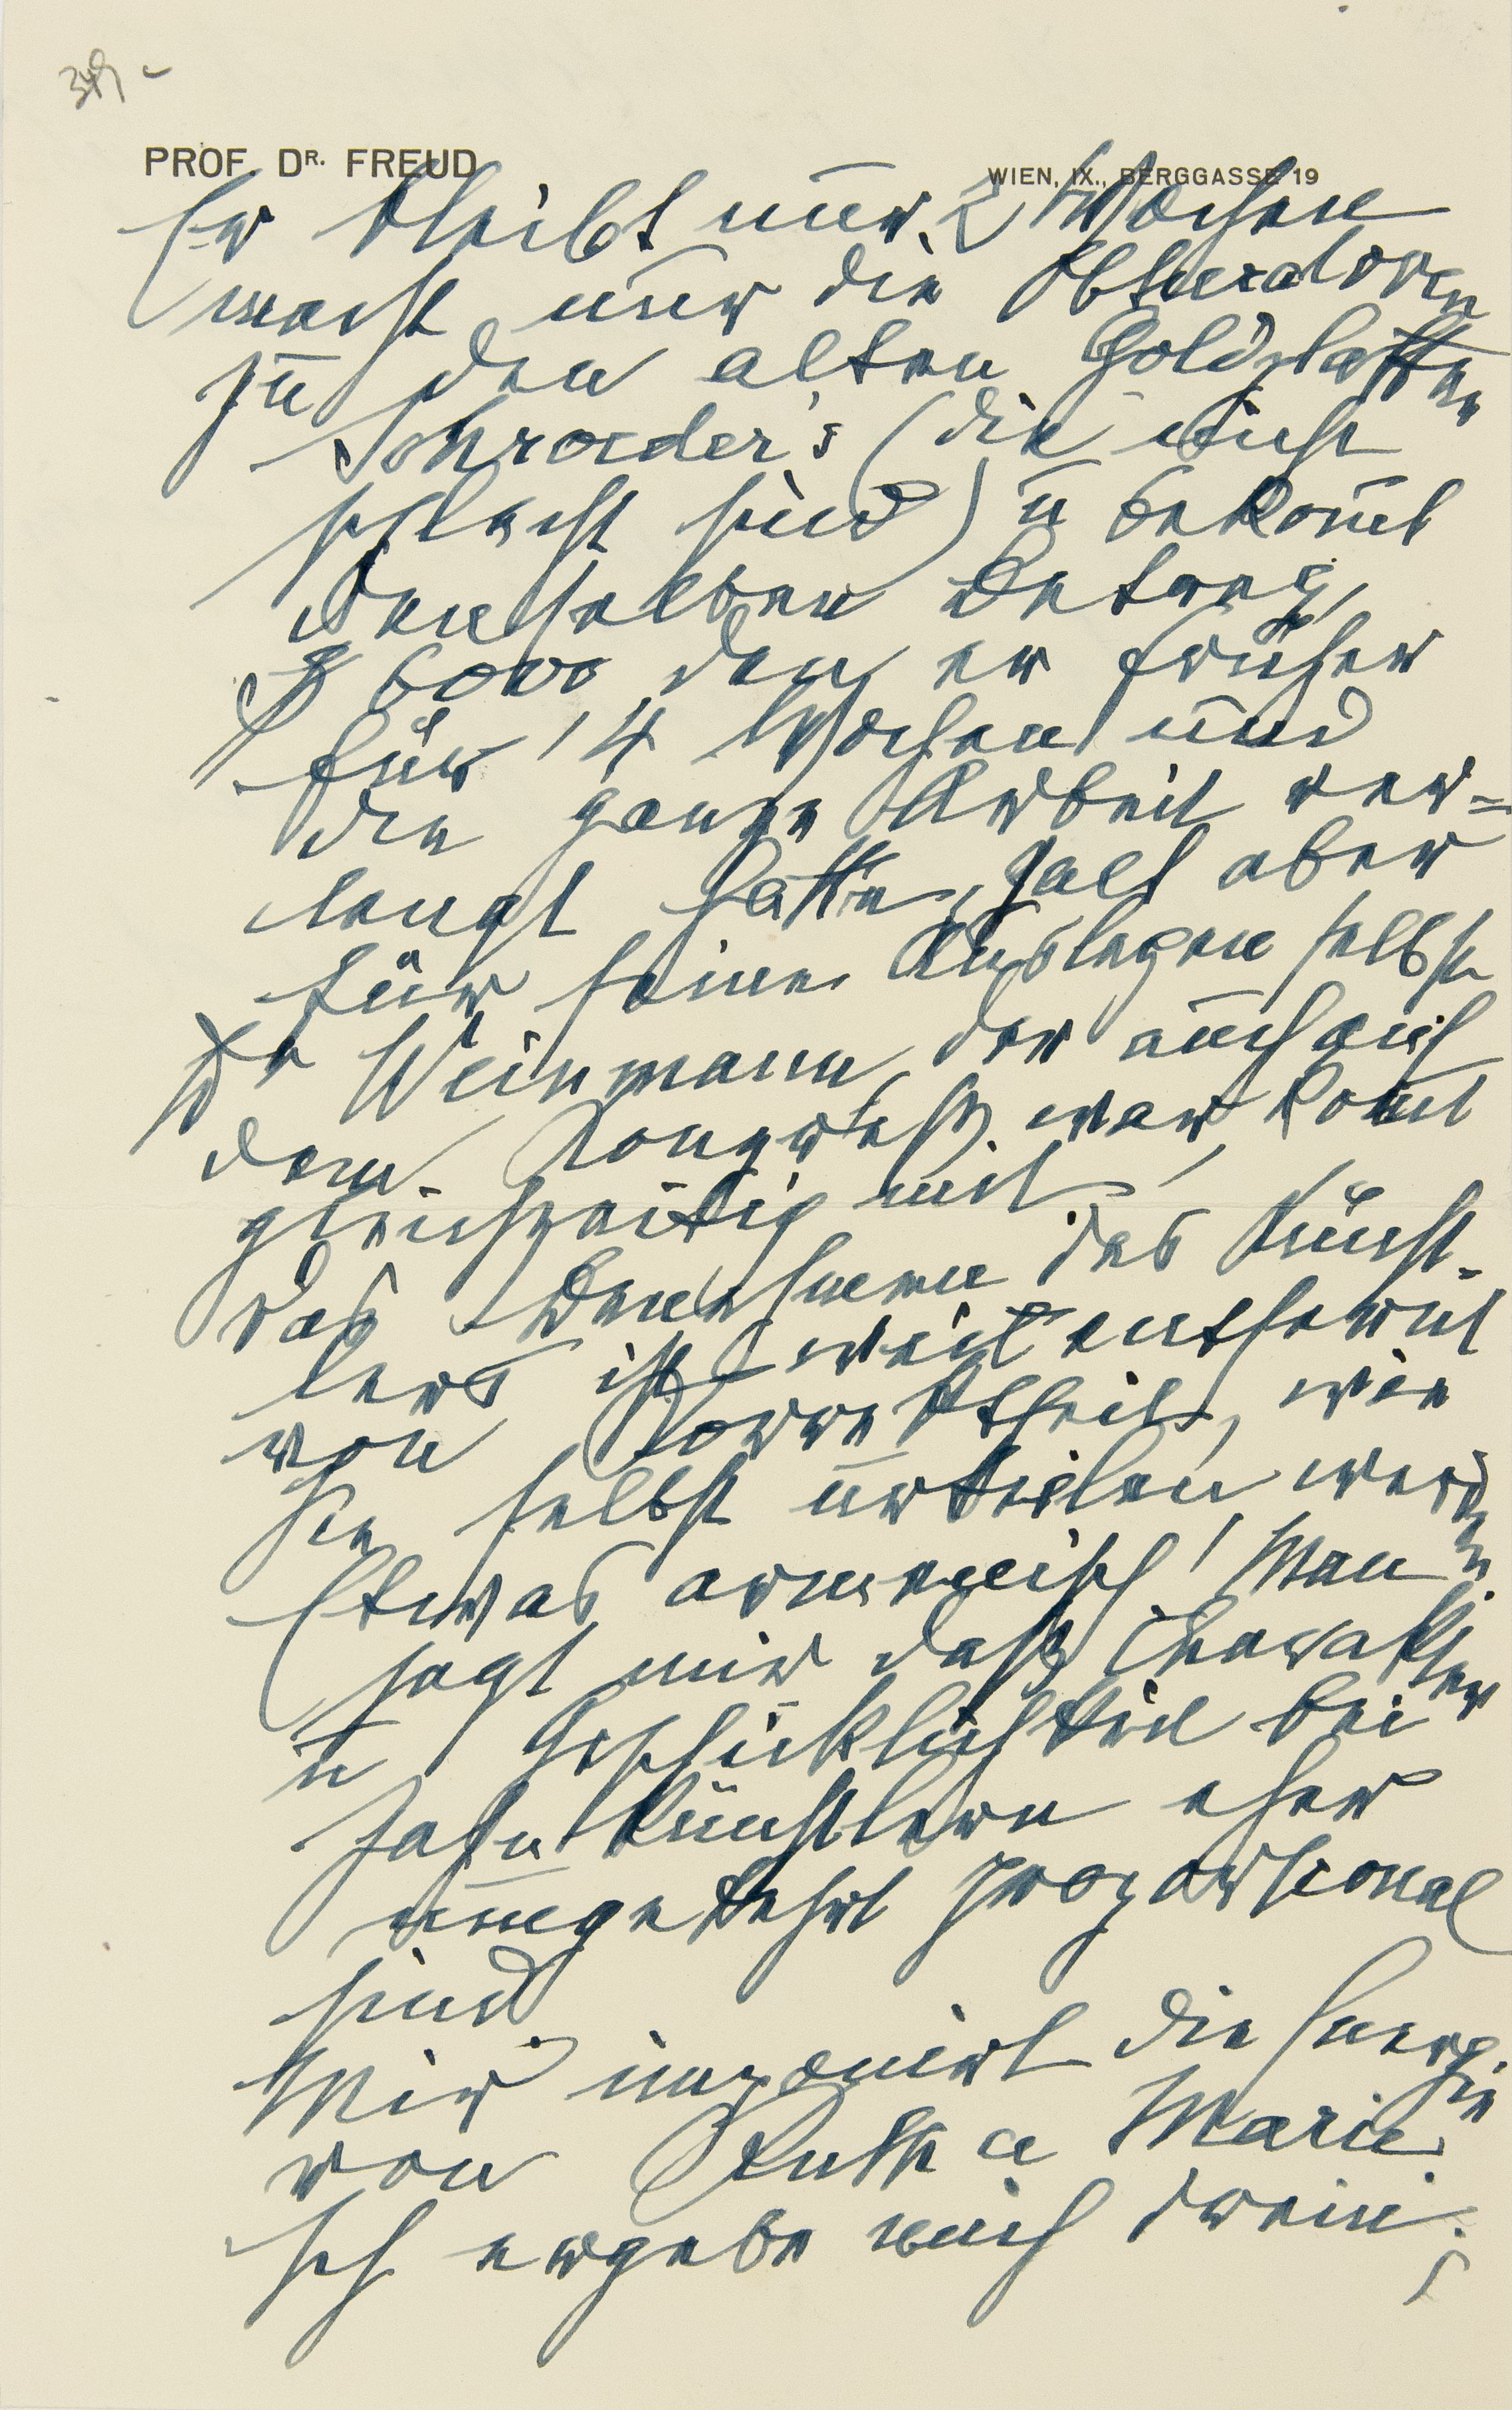 349 -
PROF. DR. FREUD
WIEN, IX., BERGGASSE 19
Er bleibt nur 2 Wochen
macht nur die Obturatoren
zu den alten Goldplatten
Schroeder's (die nicht
schlecht sind) u bekom̄t
denselben Betrag,
$ 6000 den er früher
für 4 Wochen und
die ganze Arbeit ver=
langt hätte, zalt aber
für seine Auslagen selbst
Dr Weinmann, der auch auf
dem Kongreß war, kom̄t
gleichzeitig mit.
Das Benehmen des Künst-
lers ist weit entfernt
von Korrektheit, wie
Sie selbst urteilen werden.
Etwas armenisch! Man
sagt mir daß Charakter
u Geschicklichkeit bei
Zahnkünstlern eher
umgekehrt proportional
sind.
Mir imponirt die Energie
von Ruth u Marie.
Ich ergebe mich drein;